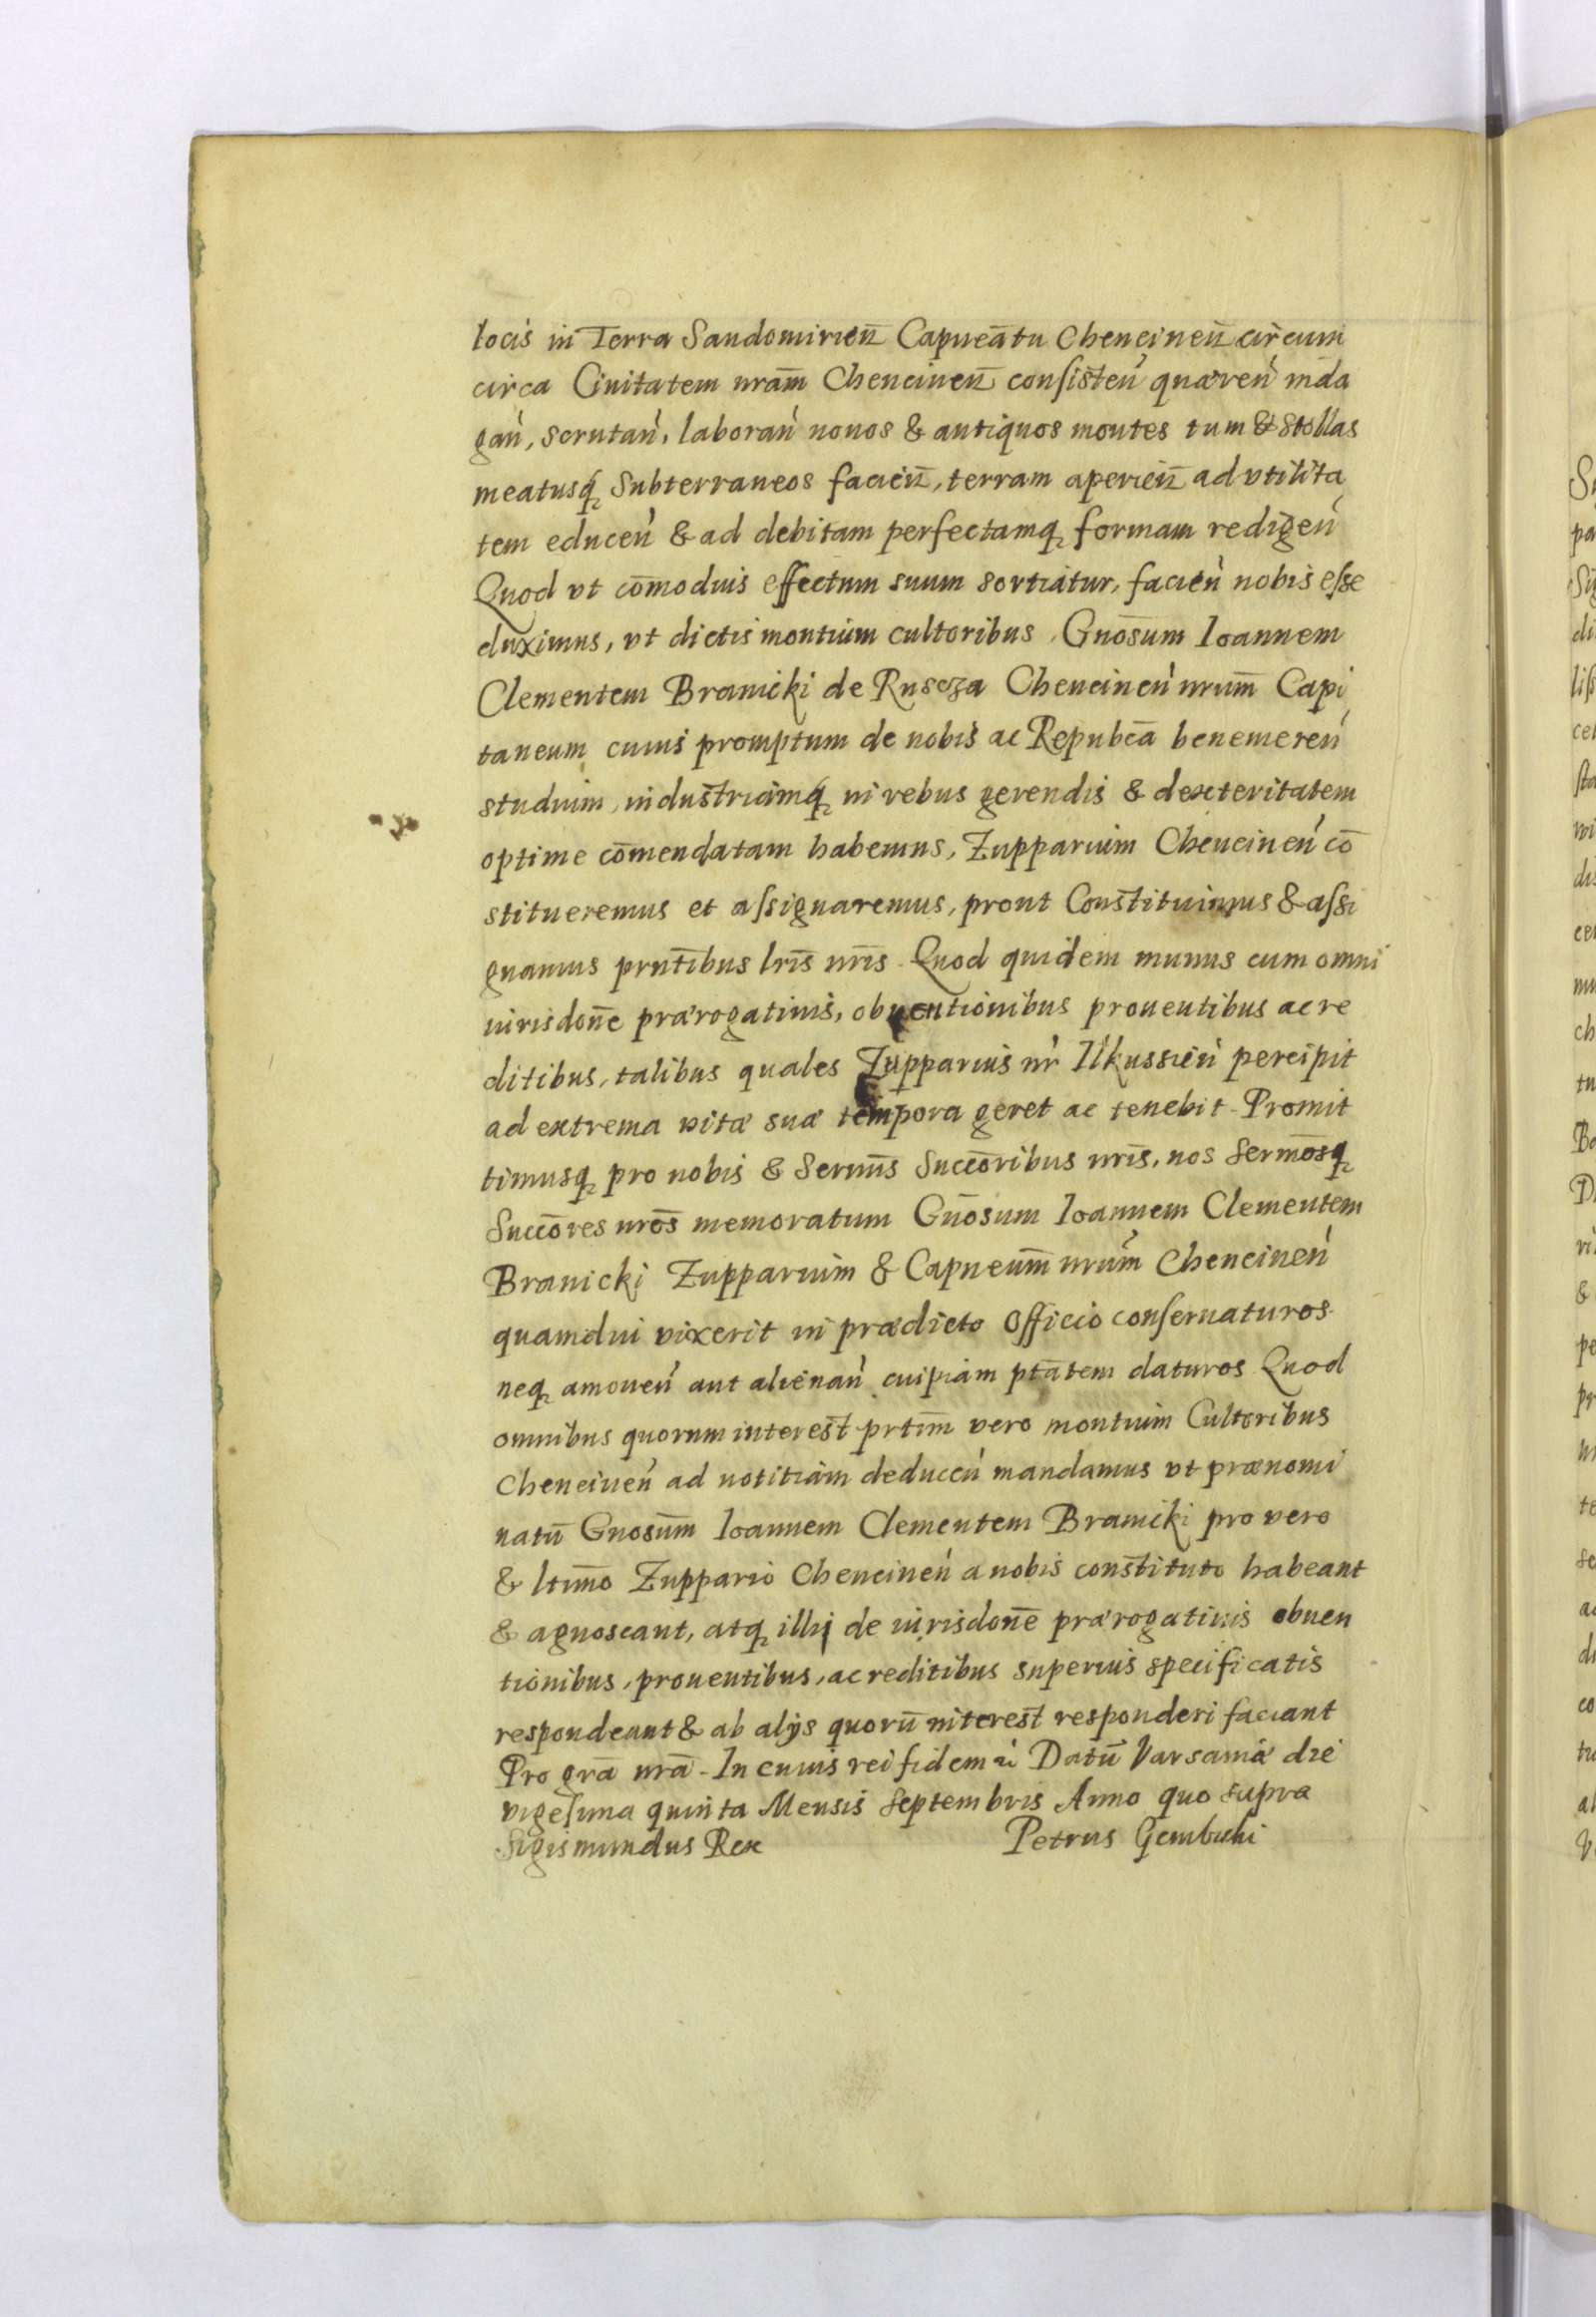 locis in Terra Sandomirien̄ Capneātu Chencinen̄ circum
circa Ciuitatem nram̄ Chencinen̄ consisten̄ quæren̄ inda
gan̄, scrutan̄, laboran̄ nouos & antiquos montes tum & Stollas
meatusq₃ Subterraneos facien̄, terram aperien̄ ad vtilita
tem educen̄ & ad debitam perfectamq₃ formam redigen̄
Quod vt com̄odius effectum suum sortiatur, facien̄ nobis esse
duximus, vt dictis montium cultoribus, Gnōsum Ioannem
Clementem Branicki de Ruscza Chencinen̄ nrum̄ Capi
taneum cuius promptum de nobis ac Repubcā benemeren̄
studium, industriamq₃ in rebus gerendis & dexteritatem
optime com̄endatam habemus, Zupparium Chencinen̄ cō
stitueremus et assignaremus, prout Constituimus & assi
gnamus prntībus lrīs nrīs. Quod quidem munus cum omni
iurisdonē prærogatiuis, obuentionibus prouentibus ac re
ditibus, talibus quales Zupparius nr̄ Ilkussien̄ percipit
ad extrema vitæ suæ tempora geret ac tenebit. Promit
timusq₃ pro nobis & Sermīs Succōribus nrīs, nos Sermōsq₃
Succōres nrōs memoratum Gnōsum Ioannem Clementem
Branicki Zupparium & Capneum̄ nrum̄ Chencinen̄
quamdiu vixerit in prædicto Officio conseruaturos
neq₃ amouen̄ aut alienan̄ cuipiam ptātem daturos Quod
omnibus quorum interest prtim̄ vero montium Cultoribus
Chencinen̄ ad notitiam deducen̄ mandamus vt prænomi
natū Gnosum̄ Ioannem Clementem Branicki pro vero
& ltimō Zuppario Chencinen̄ a nobis constituto habeant
& agnoscant, atq₃ illij de iurisdonē prærogatiuis obuen
tionibus, prouentibus, ac reditibus superius specificatis
respondeant & ab alijs quorū interest responderi faciant
Pro grā nrā. In cuius rei fidem ii Datū Varsauiæ die
vigesima quinta Mensis Septembris Anno quo supra
Sigismundus Rex Petrus Gembicki